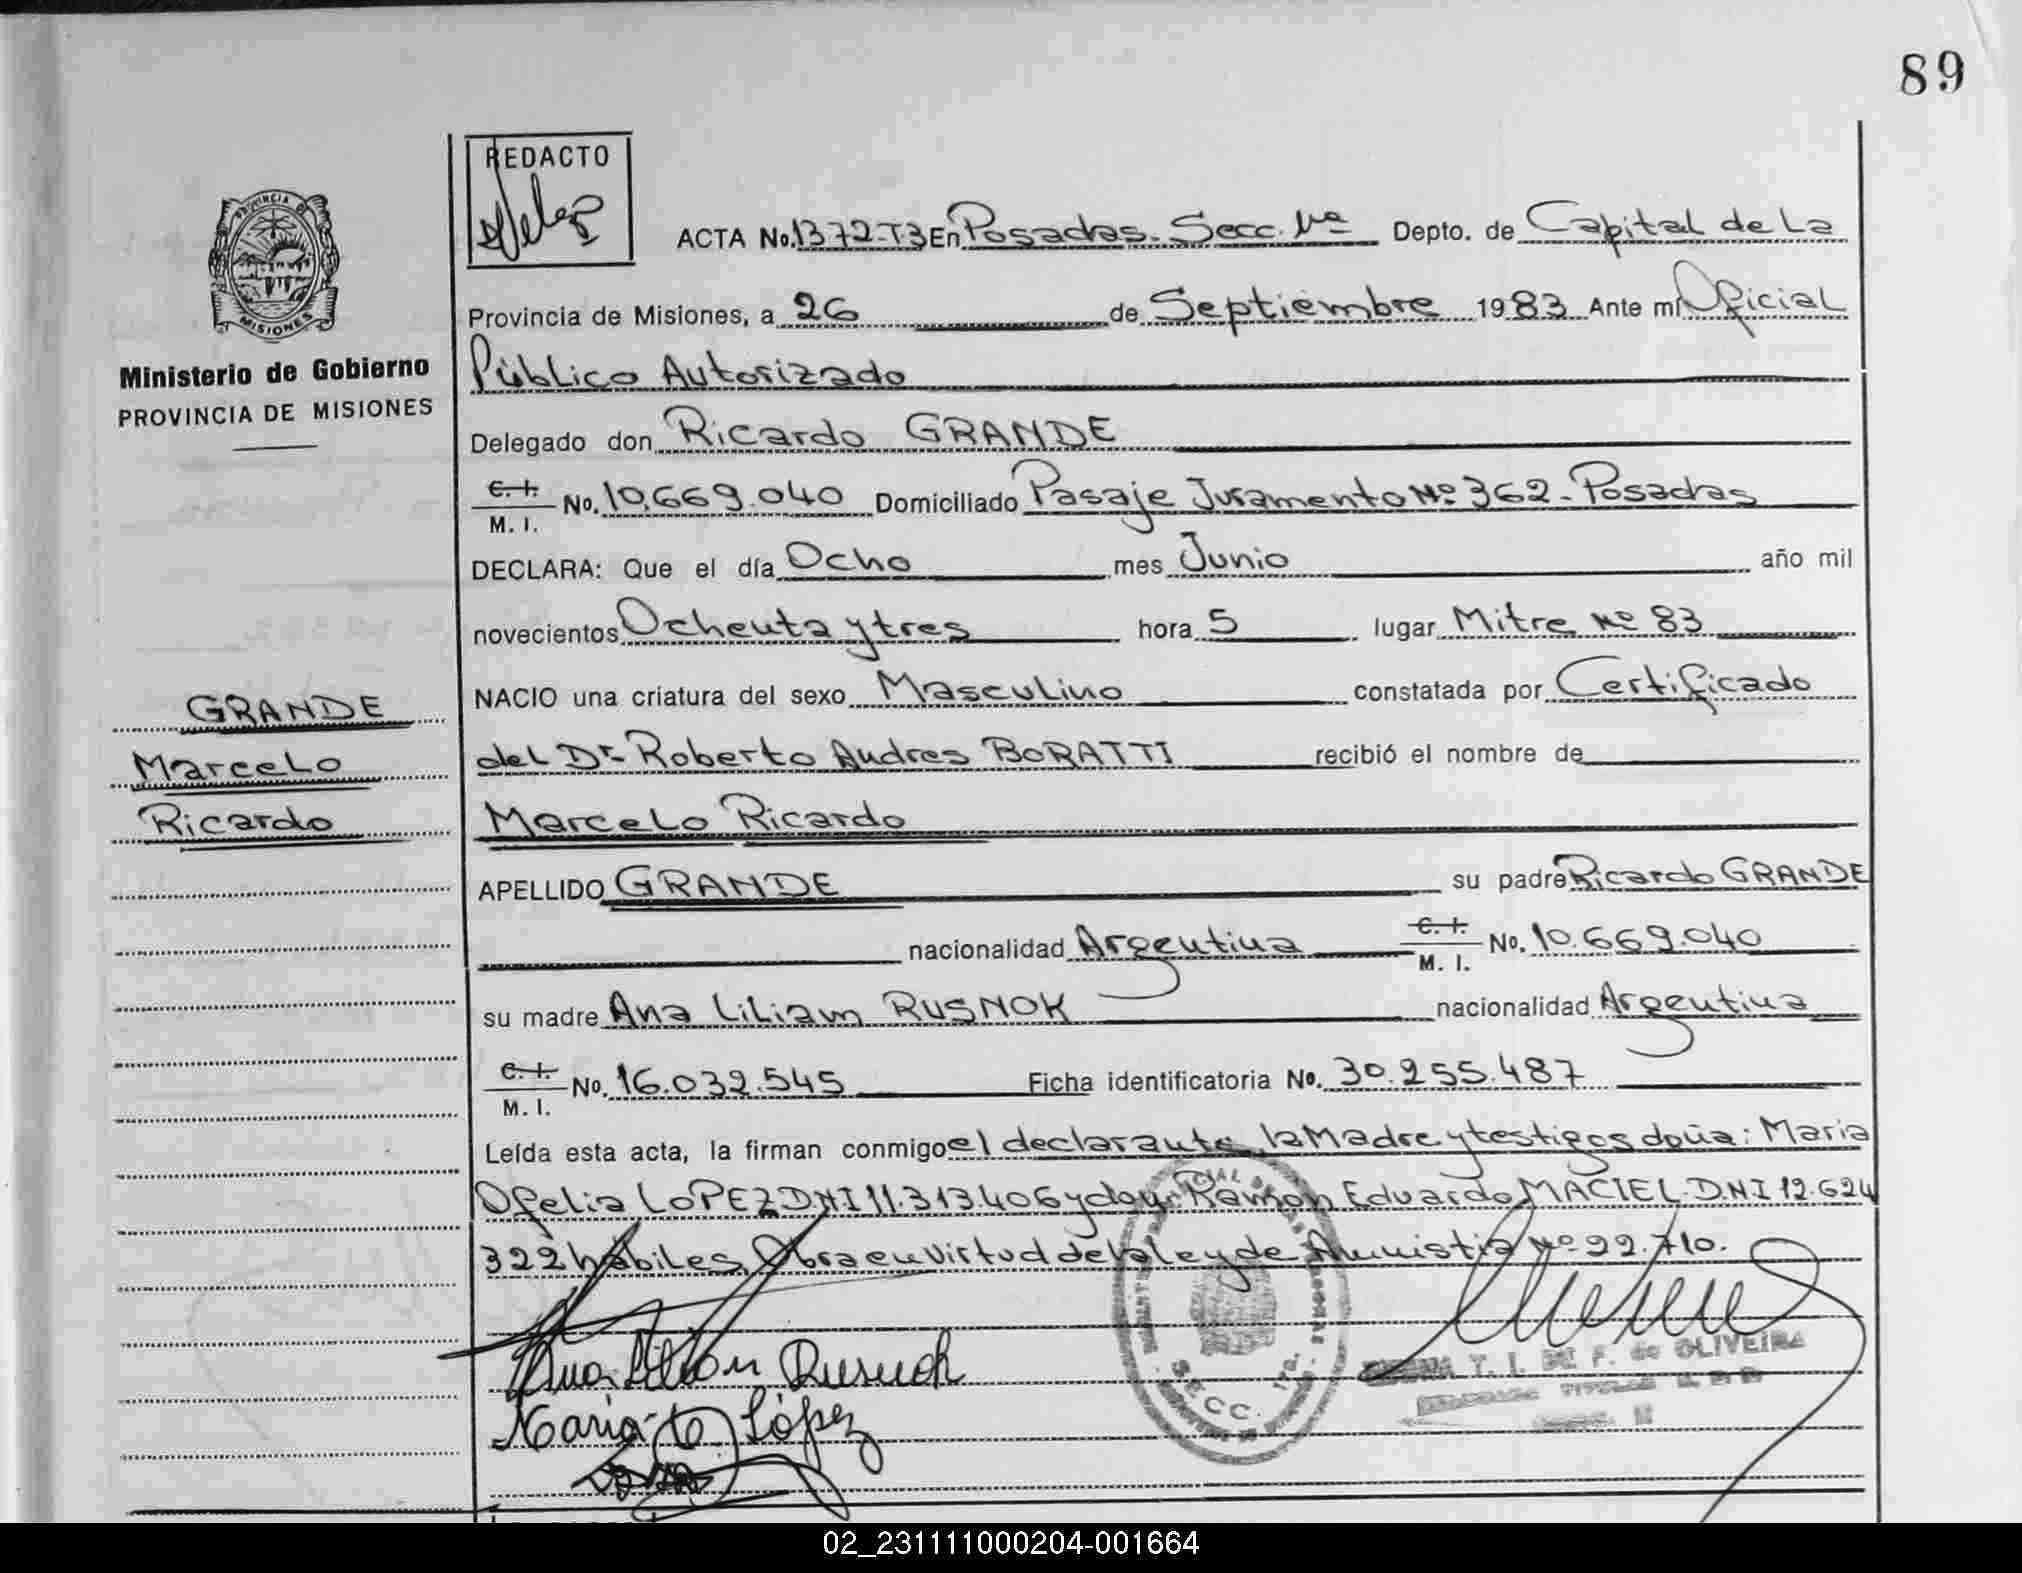 89
REDACTO
ACTA No. 1372-T3 En Posadas. Secc. 1ra Depto. de Capital de La
Provincia de Misiones, a 26 de Septiembre 1983 Ante mi Oficial
Público Autorizado
Delegado don Ricardo GRANDE
C. I. M. I. No. 10.669.040 Domiciliado Pasaje Juramento Nº 362 - Posadas
DECLARA: Que el día Ocho mes Junio año mil
novecientos Ochenta y tres hora 5 lugar Mitre Nº 83
NACIO una criatura del sexo Masculino constatada por Certificado
del Dr. Roberto Andres BORATTI recibió el nombre de
Marcelo Ricardo
APELLIDO GRANDE su padre Ricardo GRANDE
nacionalidad Argentina C. I. M. I. No. 10.669.040
su madre Ana Liliam RUSNOK nacionalidad Argentina
C. I. M. I. No. 16.032.545 Ficha identificatoria No. 30.255.487
Leída esta acta, la firman conmigo el declarante, la Madre y testigos doña: Maria
Ofelia LOPEZ D.N.I 11.313.406 y don: Ramon Eduardo MACIEL. D.N.I 12.624
322 hábiles. Obra en virtud de la ley de Amnistia Nº 22.710.
PROVINCIA DE
MISIONES
Ministerio de Gobierno
PROVINCIA DE MISIONES
GRANDE
Marcelo
Ricardo
Ana Liliam Rusnok
Maria O López
SECC. 1ra.
T. I. DE F. de OLIVEIRA
02_231111000204-001664